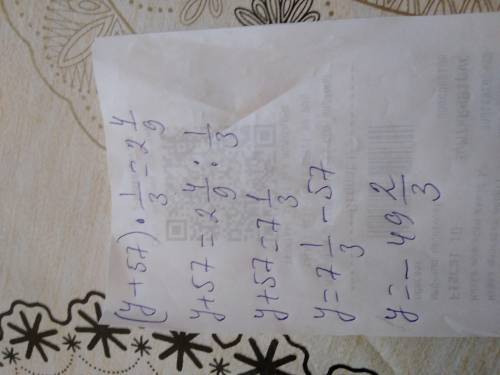 (y+57)·1/3=2 4/9
y+57=2 4/9:1/3
y+57=7 1/3
y=7 1/3-57
y=-49 2/3